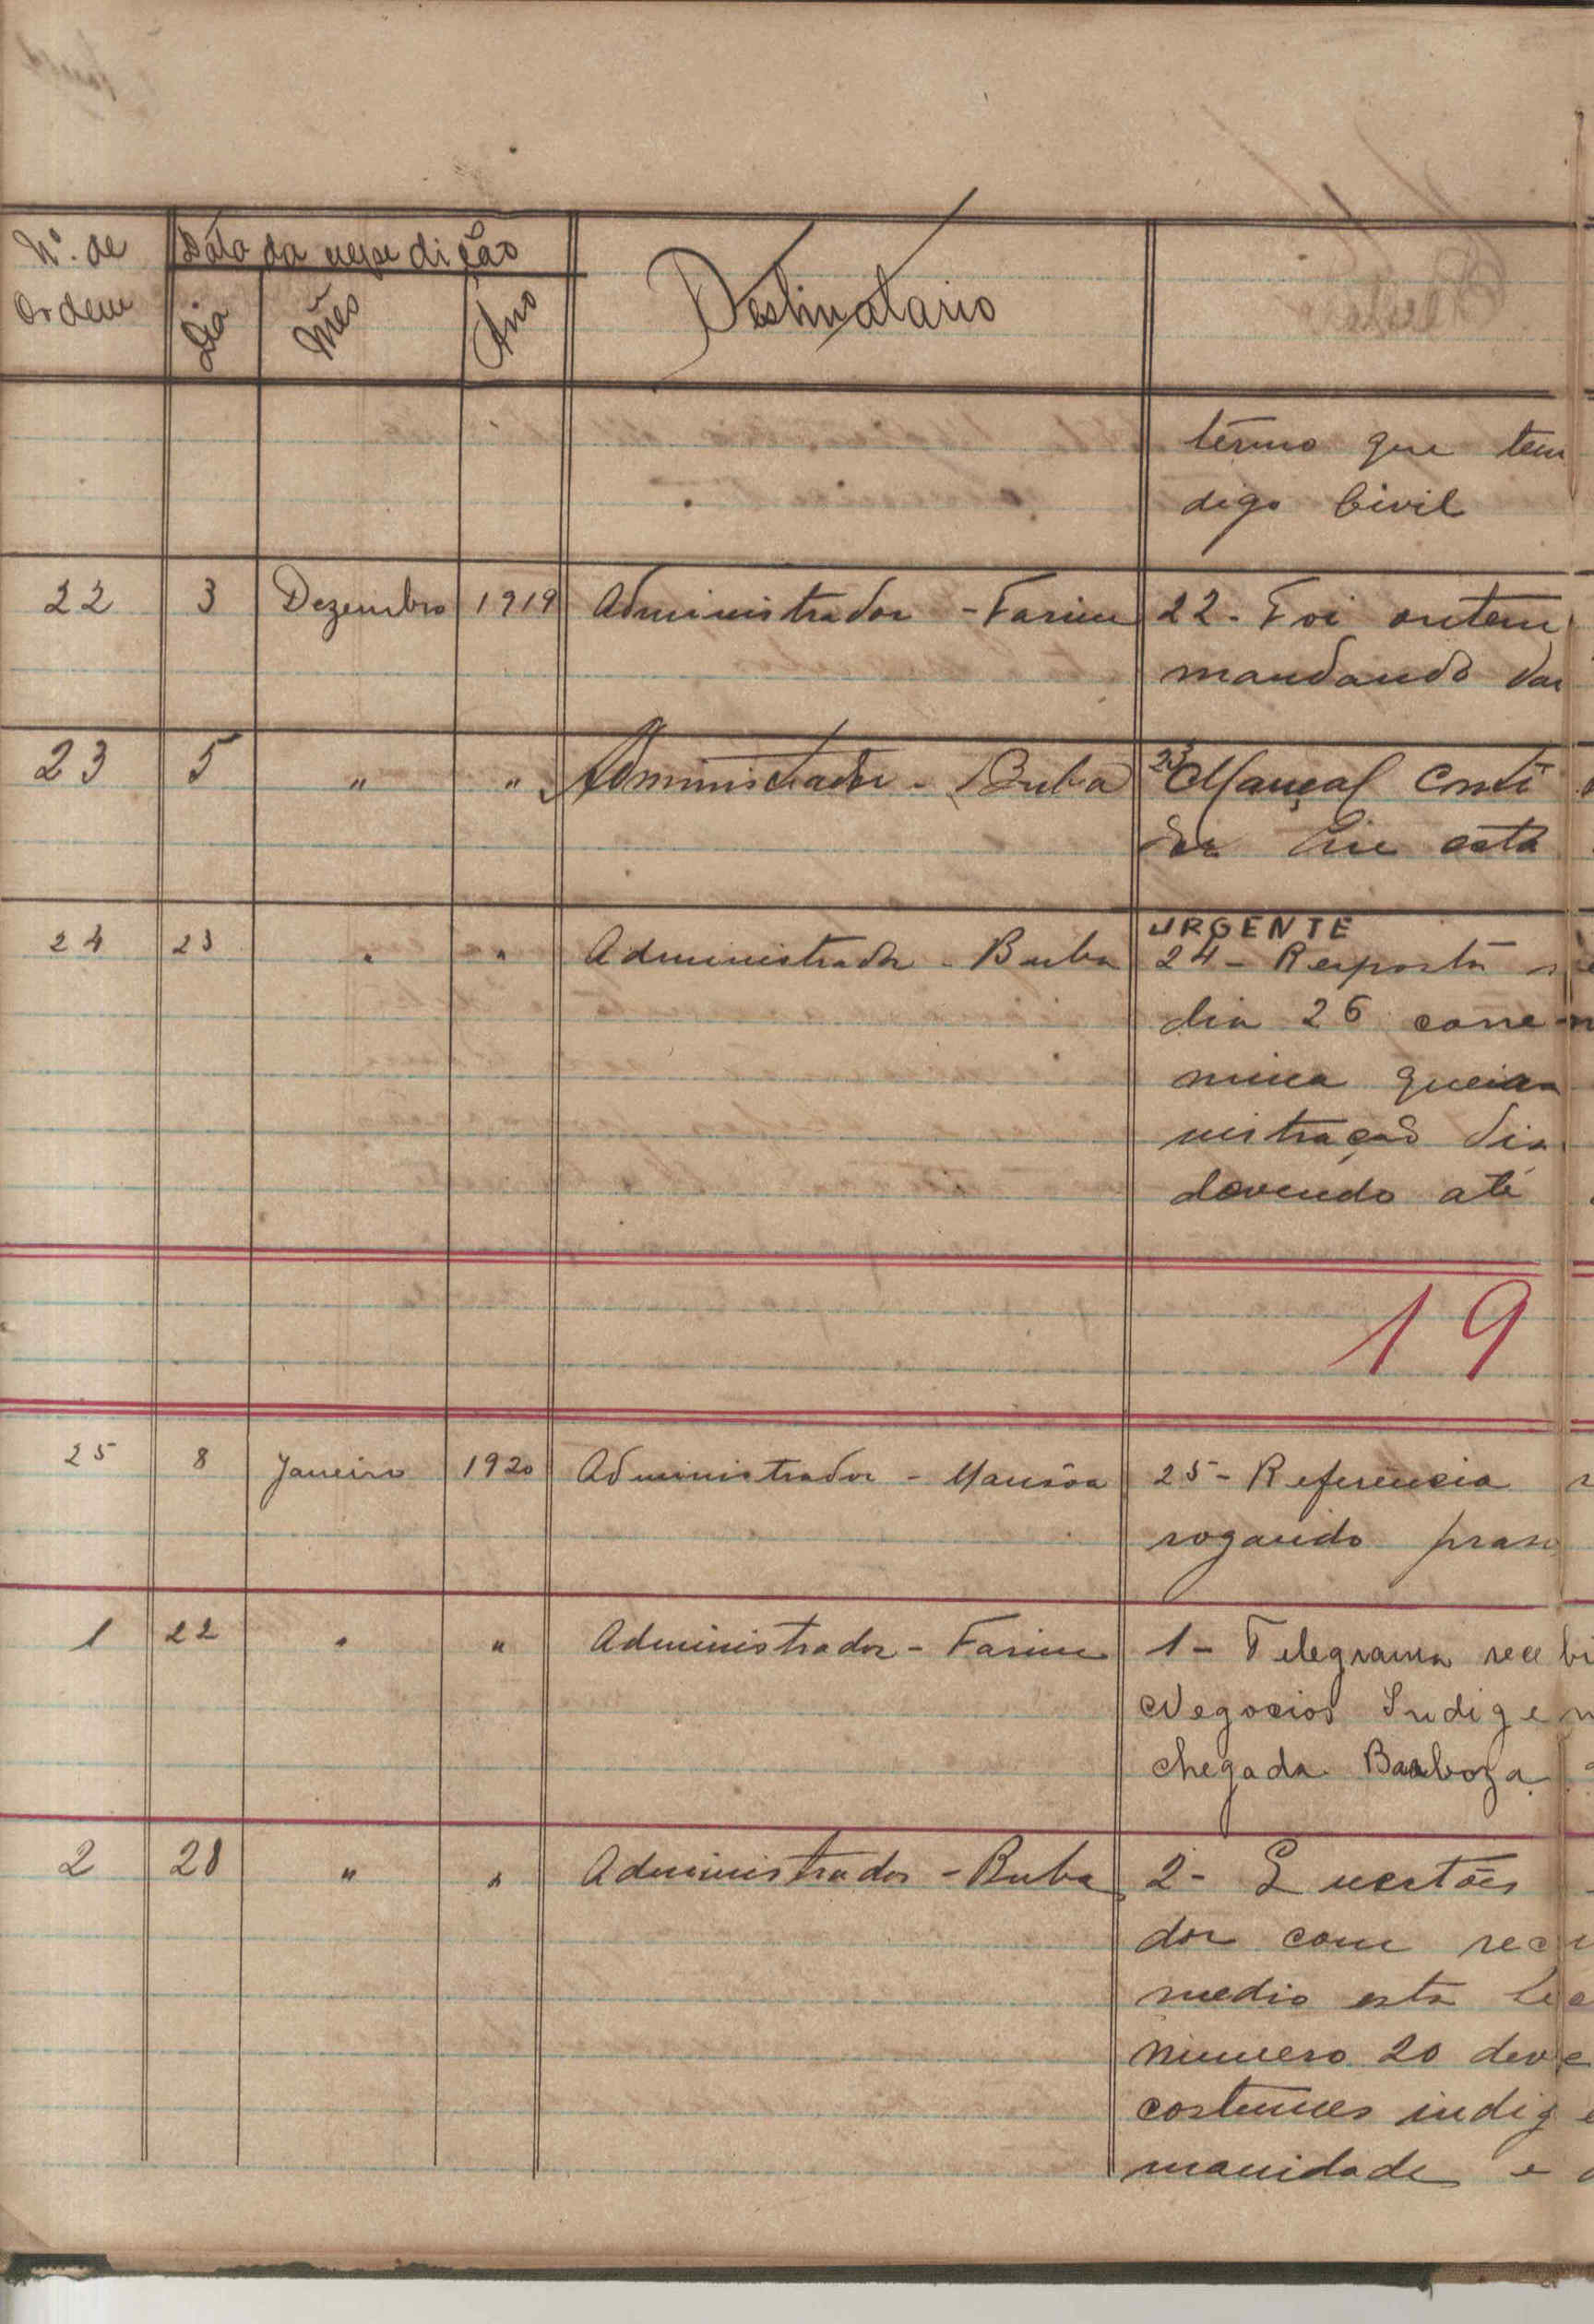 Nº. de Data da expedição Destinatario
Ordem Dia Mês Ano
têrmo que tem
digo Civil
22 3 Dezembro 1919 Administrador - Farim 22 - Foi ontem
mandando
23 5 " " Administrador - Buba 23
está
URGENTE
24 23 " " Administrador - Buba 24 - Resposta
dia 26 corre
queira
nistração dia
devendo até
19
25 8 Janeiro 1920 Administrador - Mansôa 25 - Referencia
rogando praso
1 22 " " Administrador - Farim 1 - Telegrama recebi
Negocios Indigen
chegada Barboza
2 28 " " Administrador - Buba 2 - Questões
dor com
medio esta
numero 20 deve
costumes indige
manidade e